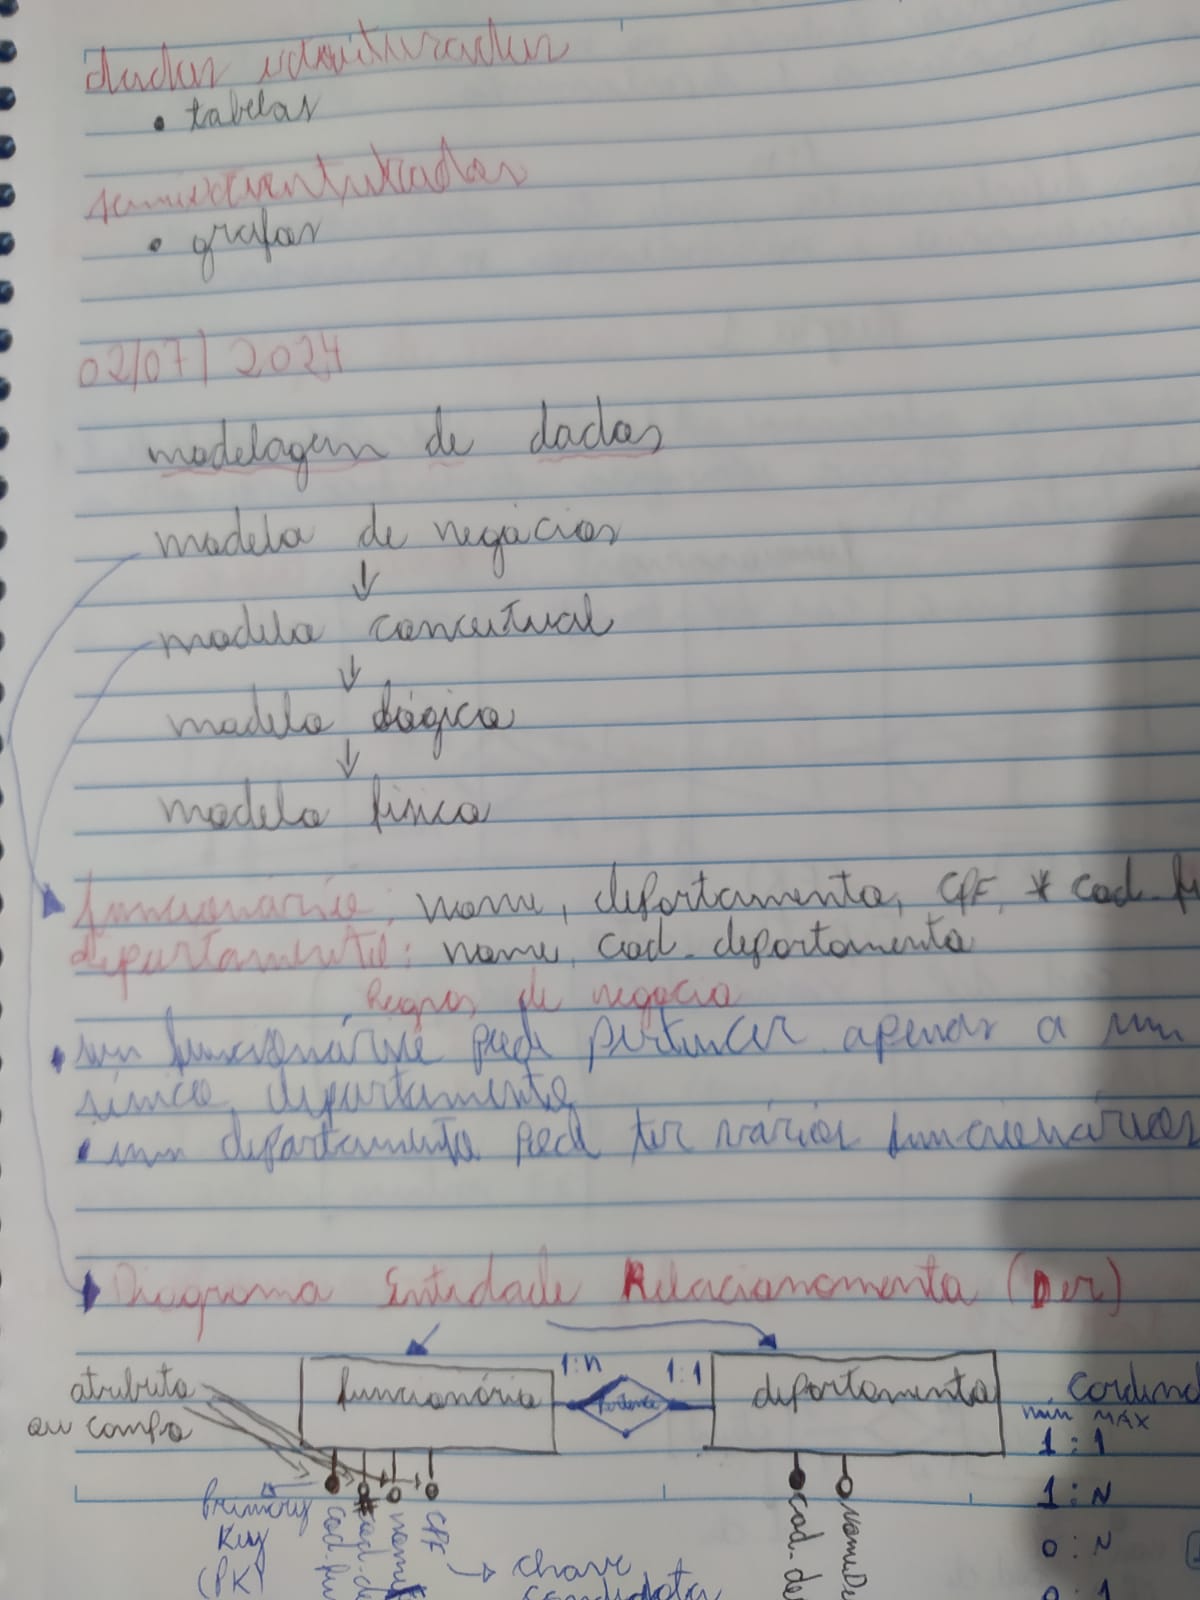 dados estruturados
• tabelas
semiestruturados
• grafos
02/07/2024
modelagem de dados
modelo de negócios
↓
modelo conceitual
↓
modelo lógico
↓
modelo físico
funcionário: nome, departamento, CPF, * cod_fu
departamento: nome, cod_departamento
Regras de negócio
• um funcionário pode pertencer apenas a um
único departamento
• um departamento pode ter vários funcionários
Diagrama Entidade Relacionamento (Der)
1:n
1:1
atributo
ou campo
funcionário
pertence
departamento
Cardina
min MÁX
1:1
1:N
0:N
0:1
Primary
Key
(PK)
cod_fu
cod_de
nome
CPF
→ chave
candidata
cod_de
nomeDe